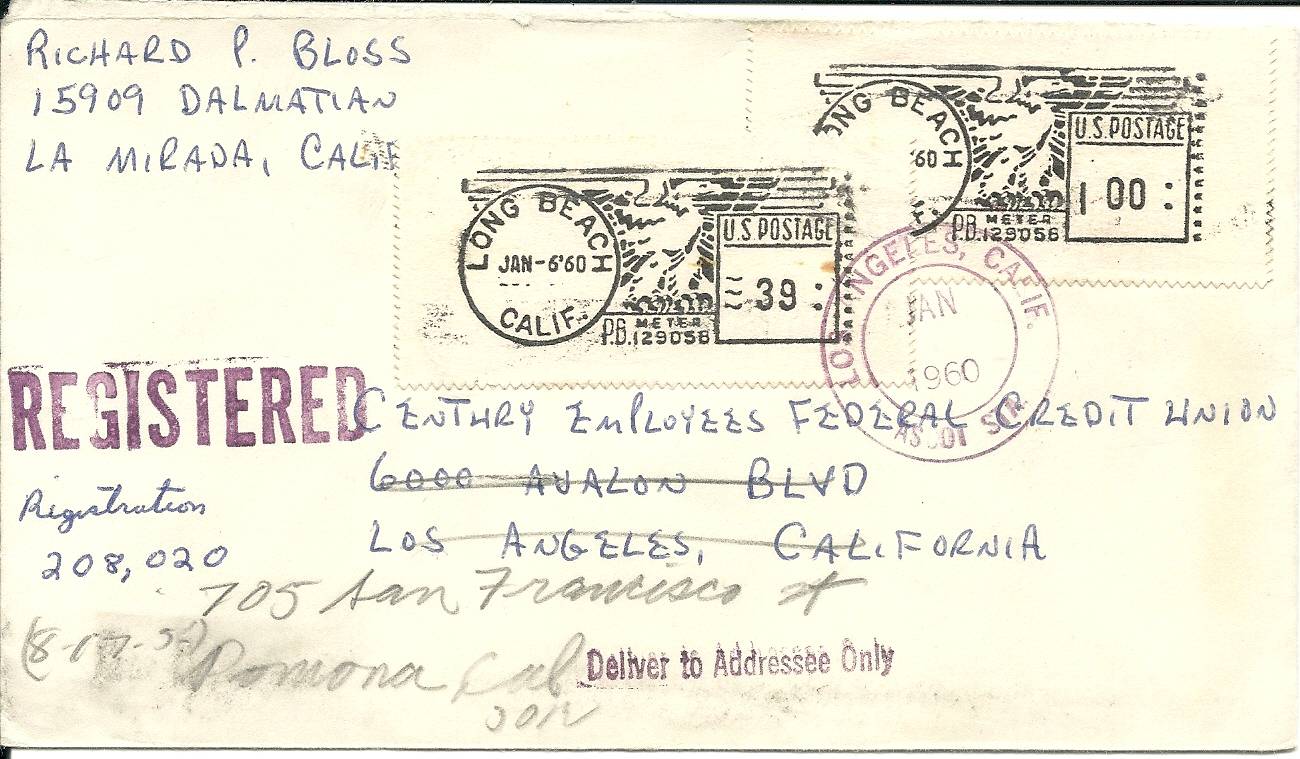 RICHARD P. BLOSS
15909 DALMATIAN
LA MIRADA, CALIF
LONG BEACH
JAN-6'60
CALIF.
U.S. POSTAGE
39
P.B. METER
129058
ONG BEACH
'60
U.S. POSTAGE
1 00
P.B. METER
129058
LOS ANGELES, CALIF.
JAN
1960
ASCOT STA.
REGISTERED
Registration
208,020
CENTURY EMPLOYEES FEDERAL CREDIT UNION
6000 AVALON BLVD
LOS ANGELES, CALIFORNIA
705 San Francisco st
Pomona, Cal
Deliver to Addressee Only